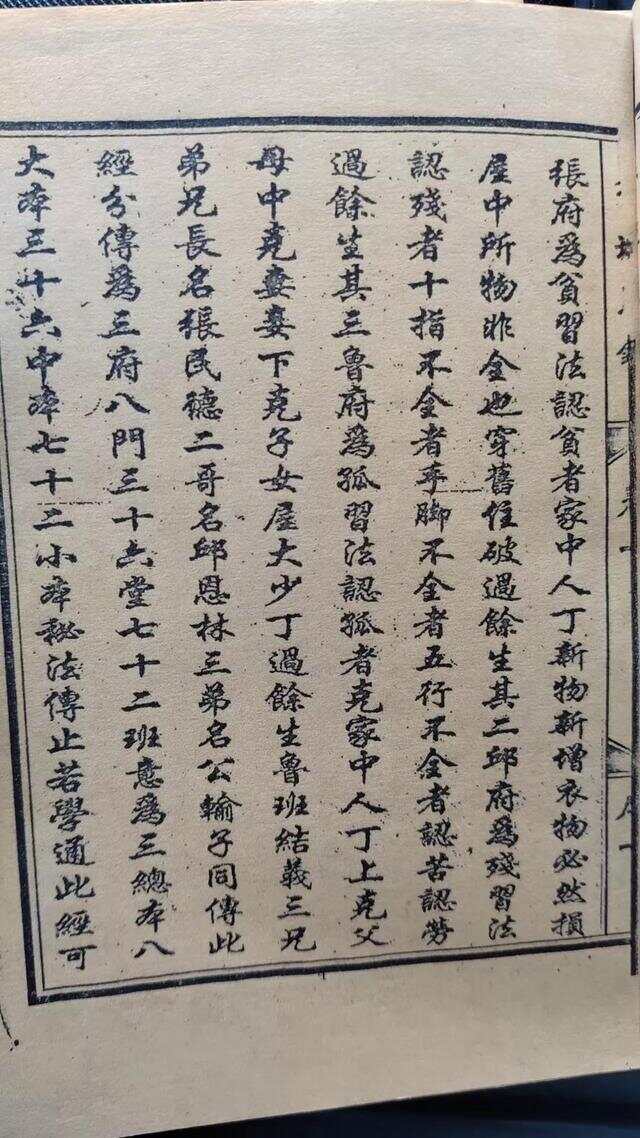 張府為貧習法認貧者家中人丁新物新增衣物必然損
屋中所物非全也穿舊住破過餘生其二邱府為殘習法
認殘者十指不全者手脚不全者五行不全者認苦認勞
過餘生其三魯府為孤習法認孤者克家中人丁上克父
母中克妻妾下克子女屋大少丁過餘生魯班結義三兄
弟兄長名張民德二哥名邱恩林三弟名公輸子同傳此
經分傳為三府八門三十六堂七十二班意為三總本八
大本三十六中本七十二小本秘法傳止若學通此經可